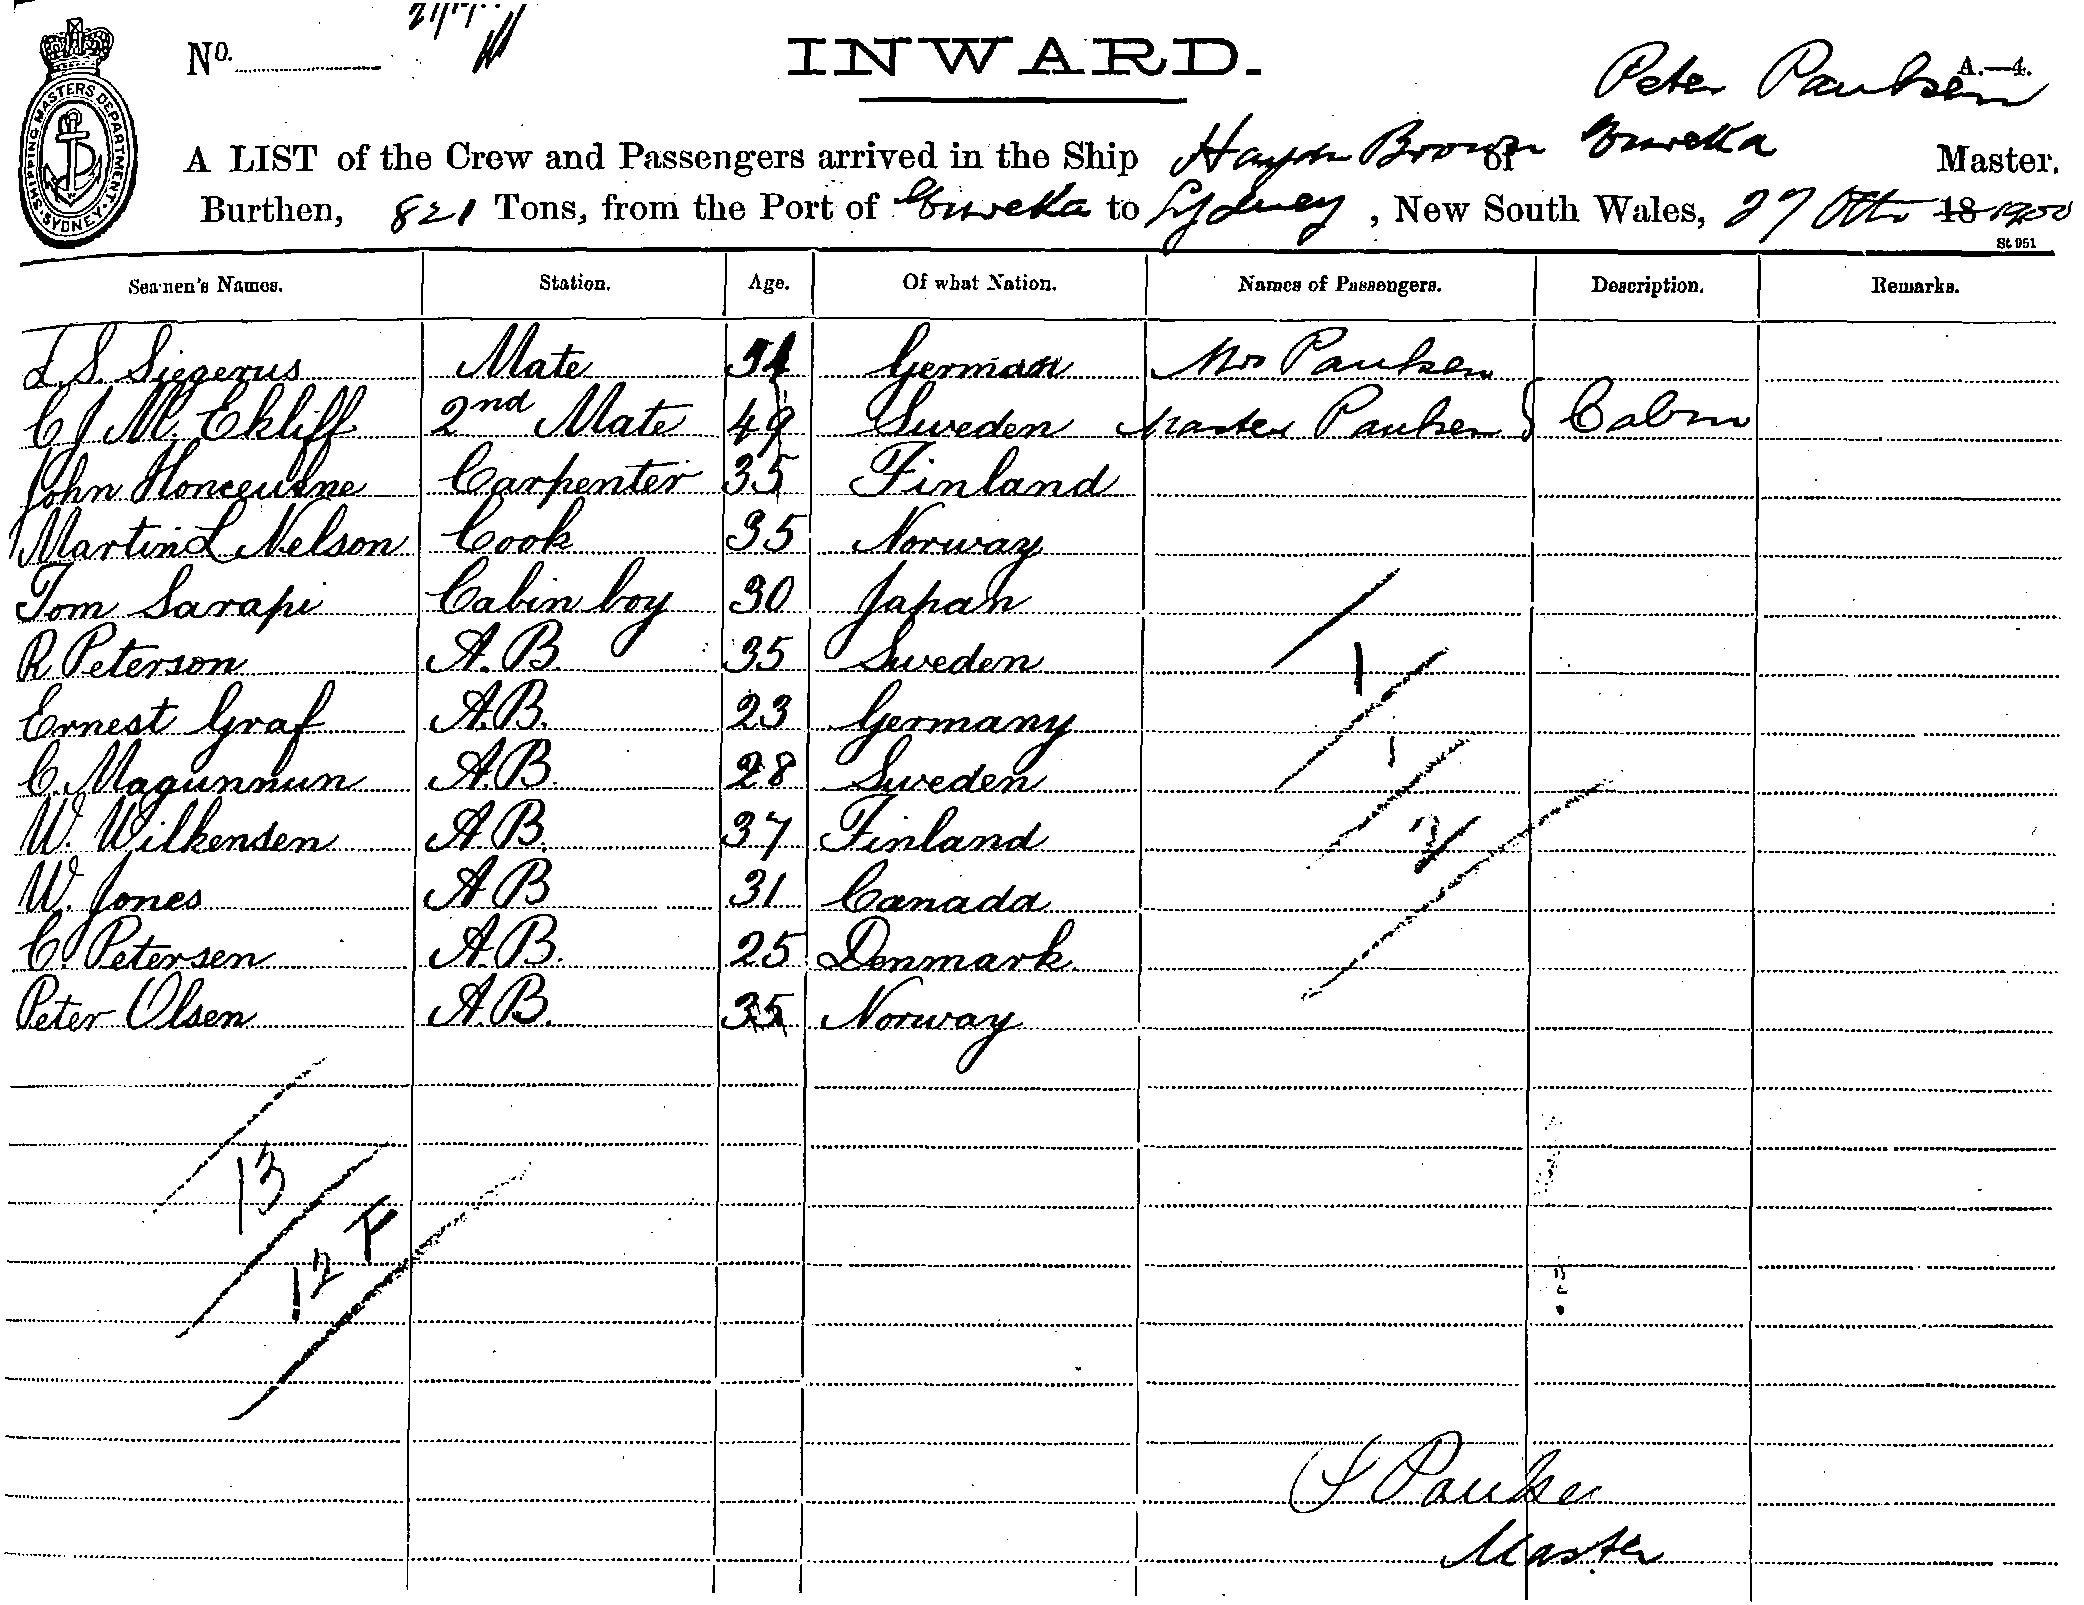 No.
INWARD.
A.—4.
Peter Paulsen
A LIST of the Crew and Passengers arrived in the Ship Haydn Brown of Eureka Master.
Burthen, 821 Tons, from the Port of Eureka to Sydney, New South Wales, 27 Octr 18 1900
St 951
SHIPPING MASTERS DEPARTMENT. SYDNEY.
Seamen's Names. Station. Age. Of what Nation. Names of Passengers. Description. Remarks.
L. S. Siegerus Mate German Mrs Paulsen
C J M. Ekliff 2nd Mate 49 Sweden Master Paulsen } Cabin
John Carpenter 35 Finland
Martin L Nelson Cook 35 Norway
Tom Sarapi Cabin boy 30 Japan
R Peterson A.B 35 Sweden
Ernest Graf A.B. 23 Germany
C. Magunnun A.B. 28 Sweden
W. Wilkensen A.B. 37 Finland
W. Jones A B 31 Canada
C. Petersen A.B. 25 Denmark
Peter Olsen A.B. 35 Norway
1
1
2
13
12 F
P Paulsen
Master